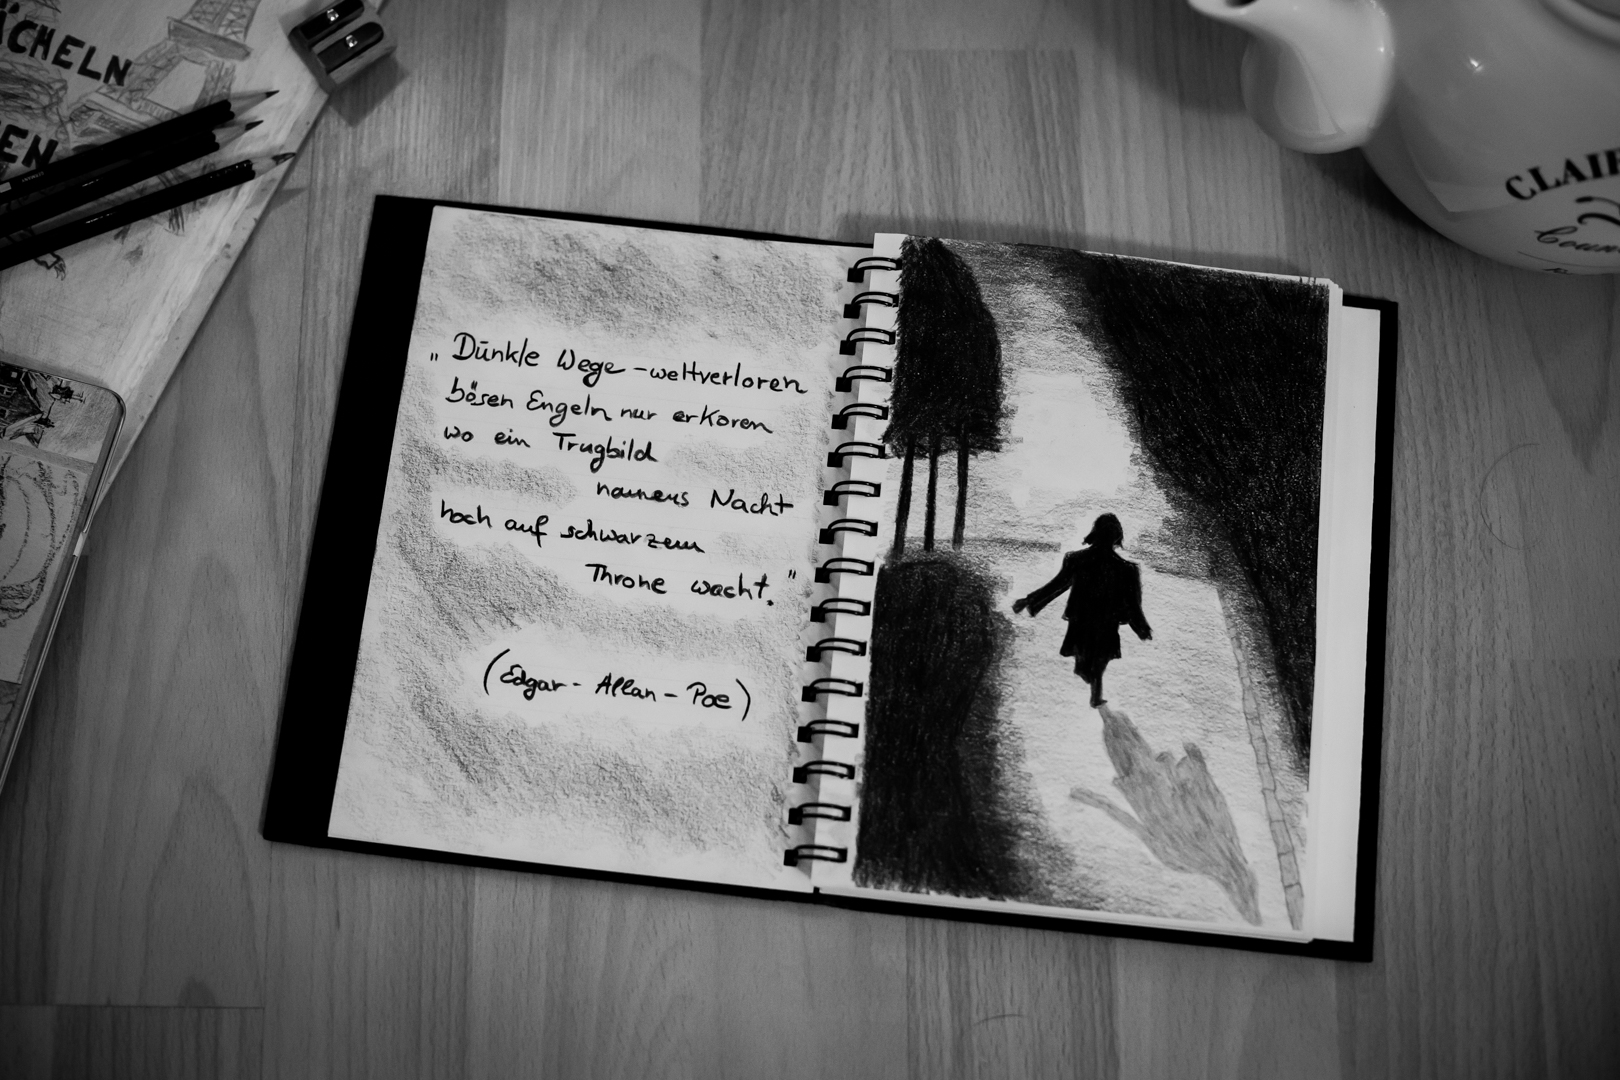 ÄCHELN
EN
„Dunkle Wege – weltverloren
bösen Engeln nur erkoren
wo ein Trugbild
namens Nacht
hoch auf schwarzem
Throne wacht."
(Edgar - Allan - Poe)
CLAIR